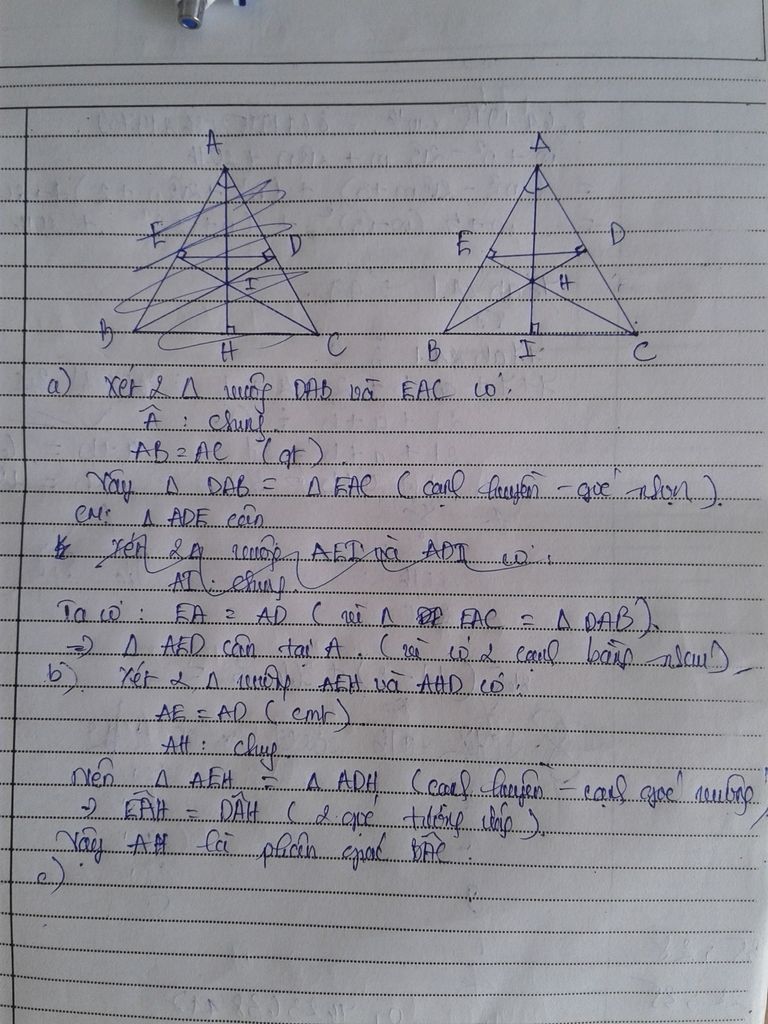 A A
E D E D
I H
B H C B I C
a) Xét 2 Δ vuông DAB và EAC có:
Â : chung
AB = AC (gt)
Vậy Δ DAB = Δ EAC (cạnh huyền - góc nhọn).
CM: Δ ADE cân
Xét 2 Δ vuông AEI và ADI có:
AI : chung
Ta có : EA = AD ( vì Δ EAC = Δ DAB).
=> Δ AED cân tại A. (vì có 2 cạnh bằng nhau)
b) Xét 2 Δ vuông AEH và AHD có:
AE = AD ( cmt)
AH : chung
Nên Δ AEH = Δ ADH (cạnh huyền - cạnh góc vuông)
=> EÂH = DÂH ( 2 góc tương ứng ).
Vậy AH là phân giác BÂC.
c)